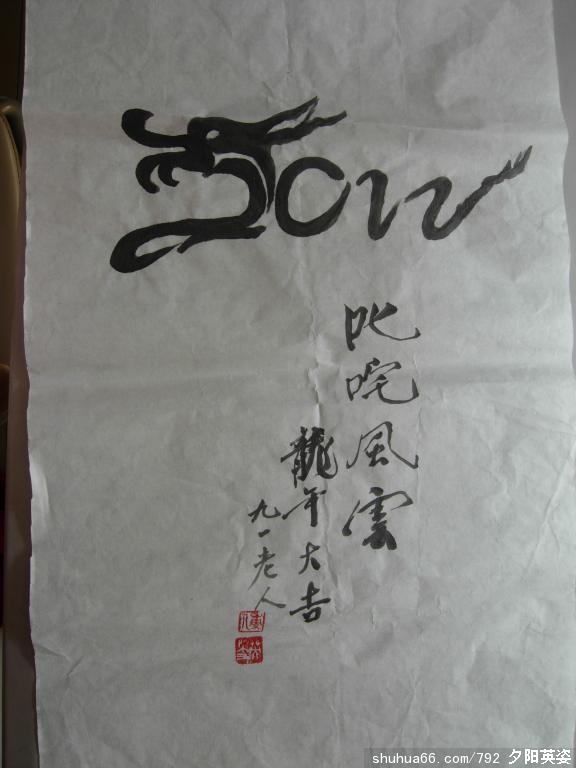 叱咤風雲
龍年大吉
九一老人
shuhua66.com/792 夕阳英姿